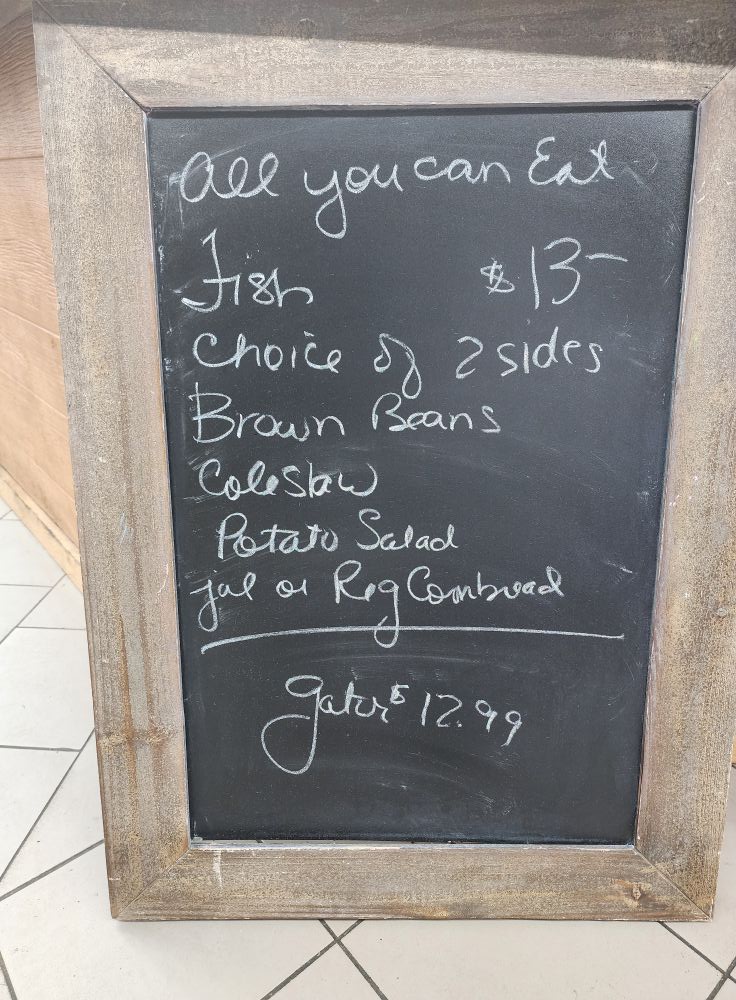 All you can Eat
Fish $13-
Choice of 2 sides
Brown Beans
Coleslaw
Potato Salad
jal or Reg Cornbread
gator $12.99